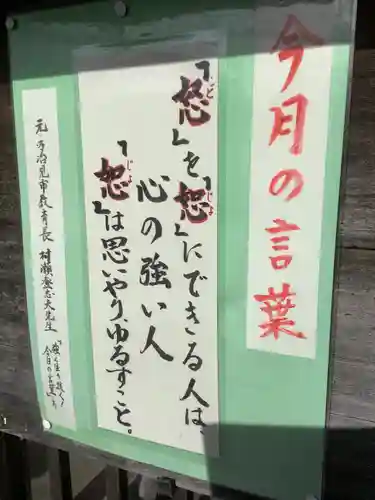 今月の言葉
『怒』を『恕』にできる人は、
心の強い人
『恕』は思いやり、ゆるすこと。
元多治見市教育長 村瀬登志夫先生
今日の言葉